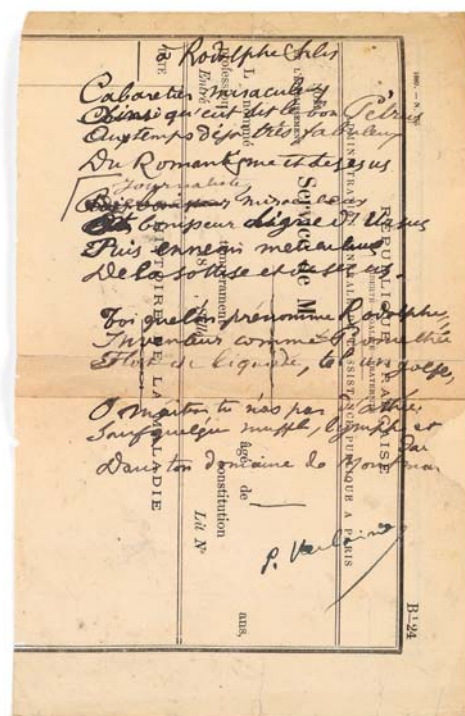 à Rodolphe Salis
Cabaretier miraculeux
Ainsi qu'eut dit le bon Pétrus
Aux temps déjà très fabuleux
Du Romantisme et des us
Journaliste
miraculeux
bon puseur digne d'Ursus
Puis ennemi méticuleux
De la sottise et
Toi que l'on prénomme Rodolphe,
Inventeur comme Prométhée
Flot de liquide, tel un golfe,
O maître tu n'as pas
Sauf quelque muffle, lymphe et
Dans ton domaine de
P. Verlaine
B¹ 24
RÉPUBLIQUE FRANÇAISE
ADMINISTRATION GÉNÉRALE DE L'ASSISTANCE PUBLIQUE A PARIS
Service de M
L nommé
âgé de ans,
Profession
constitution
Entré
Salle
Lit N°
HISTOIRE DE LA MALADIE